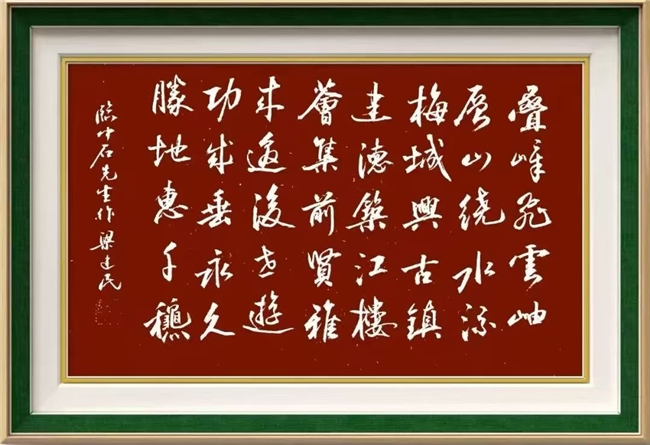 疊嶂飛雲岫
层山绕水流
梅城興古鎮
建德築江樓
薈集前賢雅
来邀後世遊
功成垂永久
勝地惠千穐
臨中石先生作 梁建民